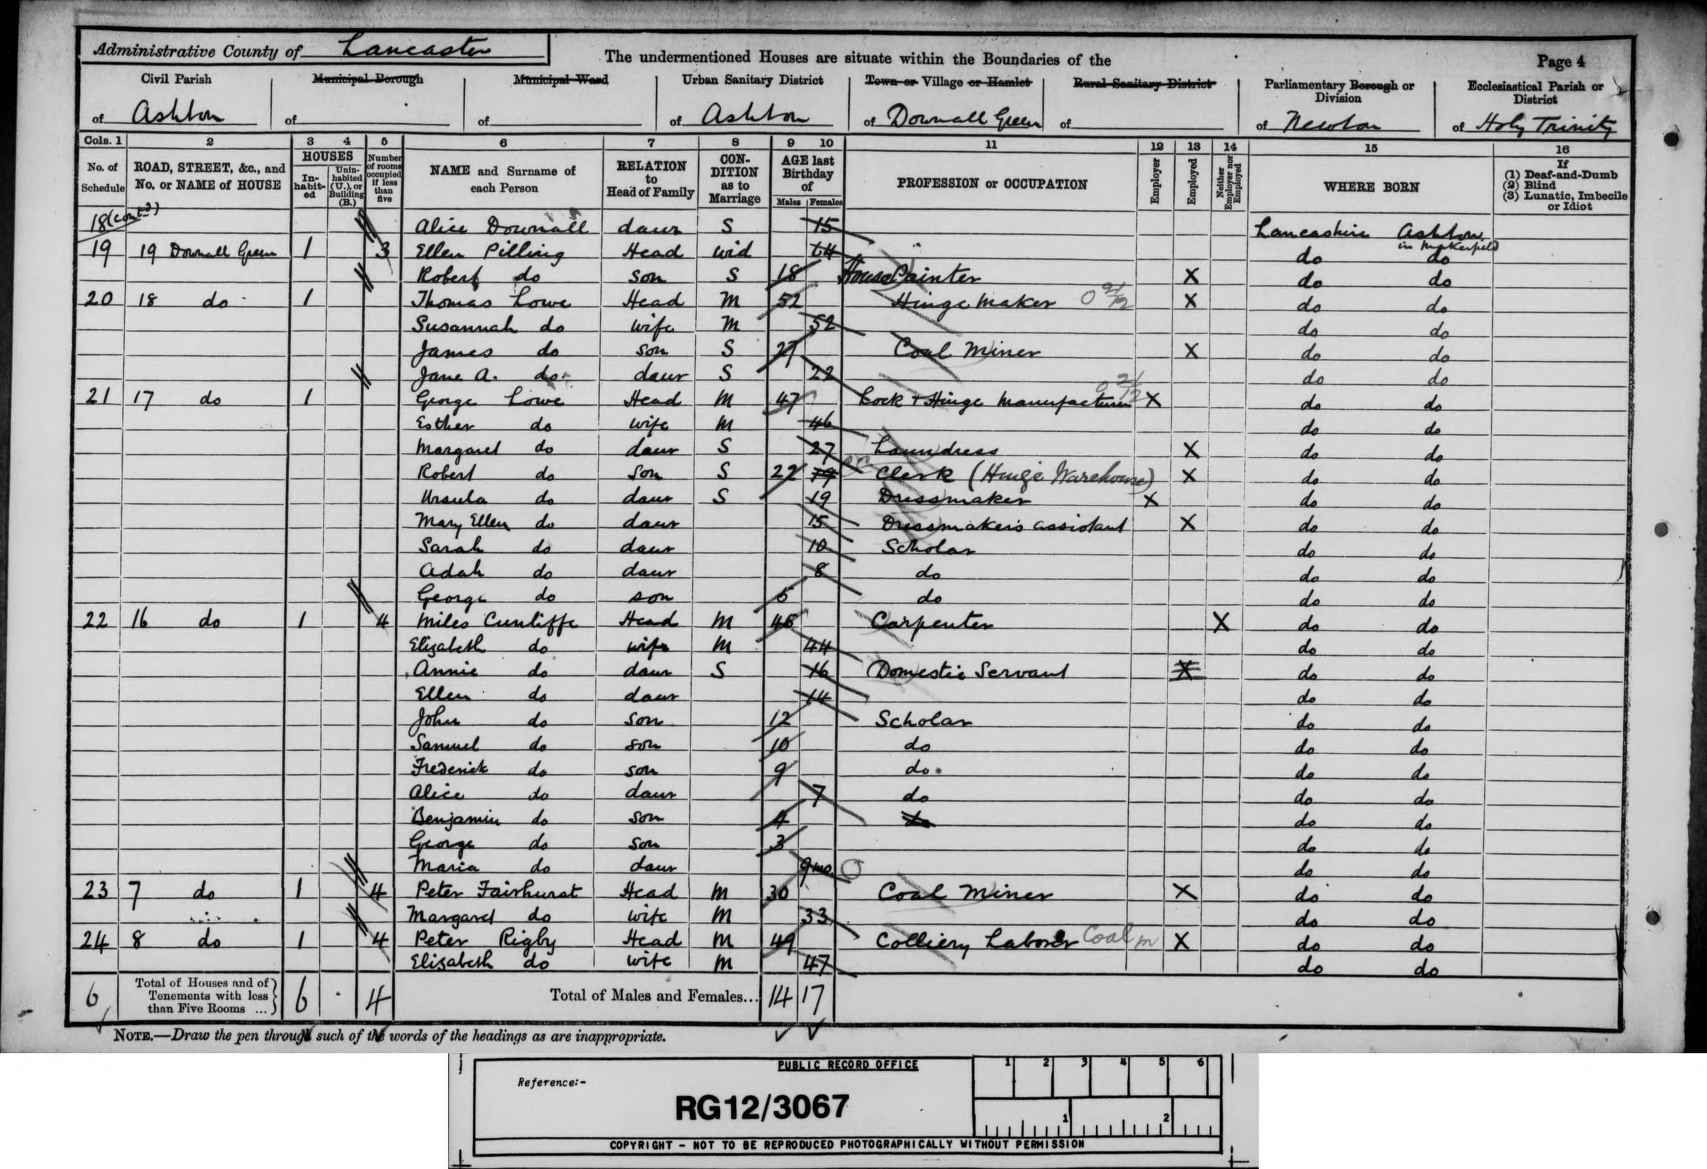 Administrative County of Lancaster
The undermentioned Houses are situate within the Boundaries of the
Page 4
Civil Parish of Ashton
Municipal Borough of
Municipal Ward of
Urban Sanitary District of Ashton
Town or Village or Hamlet of Downall Green
Rural Sanitary District of
Parliamentary Borough or Division of Newton
Ecclesiastical Parish or District of Holy Trinity
Cols. 1 2 3 4 5 6 7 8 9 10 11 12 13 14 15 16
No. of Schedule
ROAD, STREET, &c., and No. or NAME of HOUSE
HOUSES
In-habit-ed
Unin-habited (U.), or Building (B.)
Number of rooms occupied if less than five
NAME and Surname of each Person
RELATION to Head of Family
CON-DITION as to Marriage
AGE last Birthday of
Males Females
PROFESSION or OCCUPATION
Employer
Employed
Neither Employer nor Employed
WHERE BORN
If
(1) Deaf-and-Dumb
(2) Blind
(3) Lunatic, Imbecile or Idiot
18 (contd) Alice Downall daur S 15 Lancashire Ashton in Makerfield
19 19 Downall Green 1 3 Ellen Pilling Head Wid 64 do do
Robert do son S 18 House Painter X do do
20 18 do 1 Thomas Lowe Head M 52 Hinge Maker X do do
Susannah do wife M 52 do do
James do son S 27 Coal Miner X do do
Jane A. do daur S 22 do do
21 17 do 1 George Lowe Head M 47 Lock & Hinge Manufacturer X do do
Esther do wife M 46 do do
Margaret do daur S 27 Laundress X do do
Robert do son S 22 19 Clerk (Hinge Warehouse) X do do
Ursula do daur S 19 Dressmaker X do do
Mary Ellen do daur 15 Dressmakers assistant X do do
Sarah do daur 10 Scholar do do
Adah do daur 8 do do do
George do son 5 do do do
22 16 do 1 4 Miles Cunliffe Head M 45 Carpenter X do do
Elizabeth do wife M 44 do do
Annie do daur S 16 Domestic Servant X do do
Ellen do daur 14 do do
John do son 12 Scholar do do
Samuel do son 10 do do do
Frederick do son 9 do do do
Alice do daur 7 do do do
Benjamin do son 4 do do do
George do son 3 do do
Maria do daur 9mo do do
23 7 do 1 4 Peter Fairhurst Head M 30 Coal Miner X do do
Margaret do wife M 33 do do
24 8 do 1 4 Peter Rigby Head M 49 Colliery Laborer Coal m X do do
Elizabeth do wife M 47 do do
6 Total of Houses and of Tenements with less than Five Rooms ... 6 4 Total of Males and Females... 14 17
NOTE.—Draw the pen through such of the words of the headings as are inappropriate.
PUBLIC RECORD OFFICE
1 2 3 4 5 6
Reference:-
RG12/3067
1 2
COPYRIGHT - NOT TO BE REPRODUCED PHOTOGRAPHICALLY WITHOUT PERMISSION